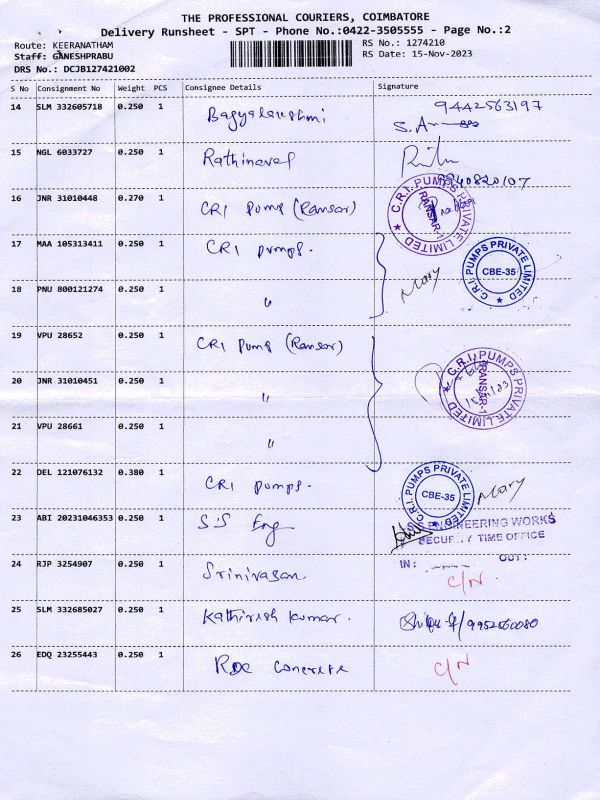 THE PROFESSIONAL COURIERS, COIMBATORE
Delivery Runsheet - SPT - Phone No.:0422-3505555 - Page No.:2
Route: KEERANATHAM
RS No.: 1274210
Staff: GANESHPRABU
RS Date: 15-Nov-2023
DRS No.: DCJB127421002
S No Consignment No Weight PCS Consignee Details Signature
14 SLM 332605718 0.250 1 Bagyalakshmi 9442563197
15 NGL 6033727 0.250 1 Rathinavel
16 JNR 31010448 0.270 1 CRI Pump (Ransar)
C.R.I. PUMPS PRIVATE LIMITED
RANSAR-1
17 MAA 105313411 0.250 1 CRI pumps. Mary
C.R.I. PUMPS PRIVATE LIMITED
CBE-35
18 PNU 800121274 0.250 1 "
19 VPU 28652 0.250 1 CRI Pump (Ransar)
C.R.I. PUMPS PRIVATE LIMITED
RANSAR-1
20 JNR 31010451 0.250 1 "
21 VPU 28661 0.250 1 "
22 DEL 121076132 0.380 1 CRI pumps. Mary
C.R.I. PUMPS PRIVATE LIMITED
CBE-35
23 ABI 20231046353 0.250 1 S.S Eng
ENGINEERING WORKS
SECURITY TIME OFFICE
IN: OUT:
24 RJP 3254907 0.250 1 Srinivasan C/N.
25 SLM 332685027 0.250 1 Kathiresh Kumar. 9952560080
26 EDQ 23255443 0.250 1 RDC Concrete C/N